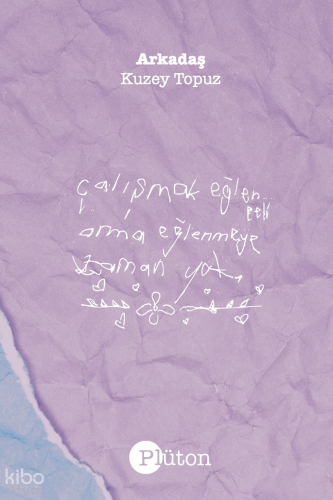 Arkadaş
Kuzey Topuz
çalışmak eğlen
celi
ama eğlenmeye
zaman yok.
Plüton
kibo